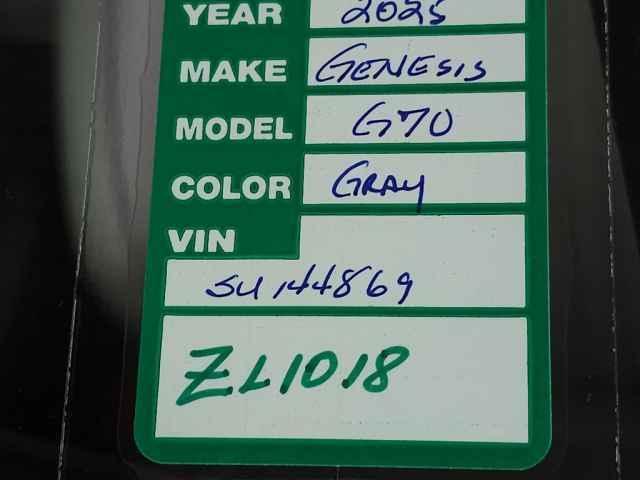 YEAR 2025
MAKE GENESIS
MODEL G70
COLOR GRAY
VIN
SU144869
ZL1018